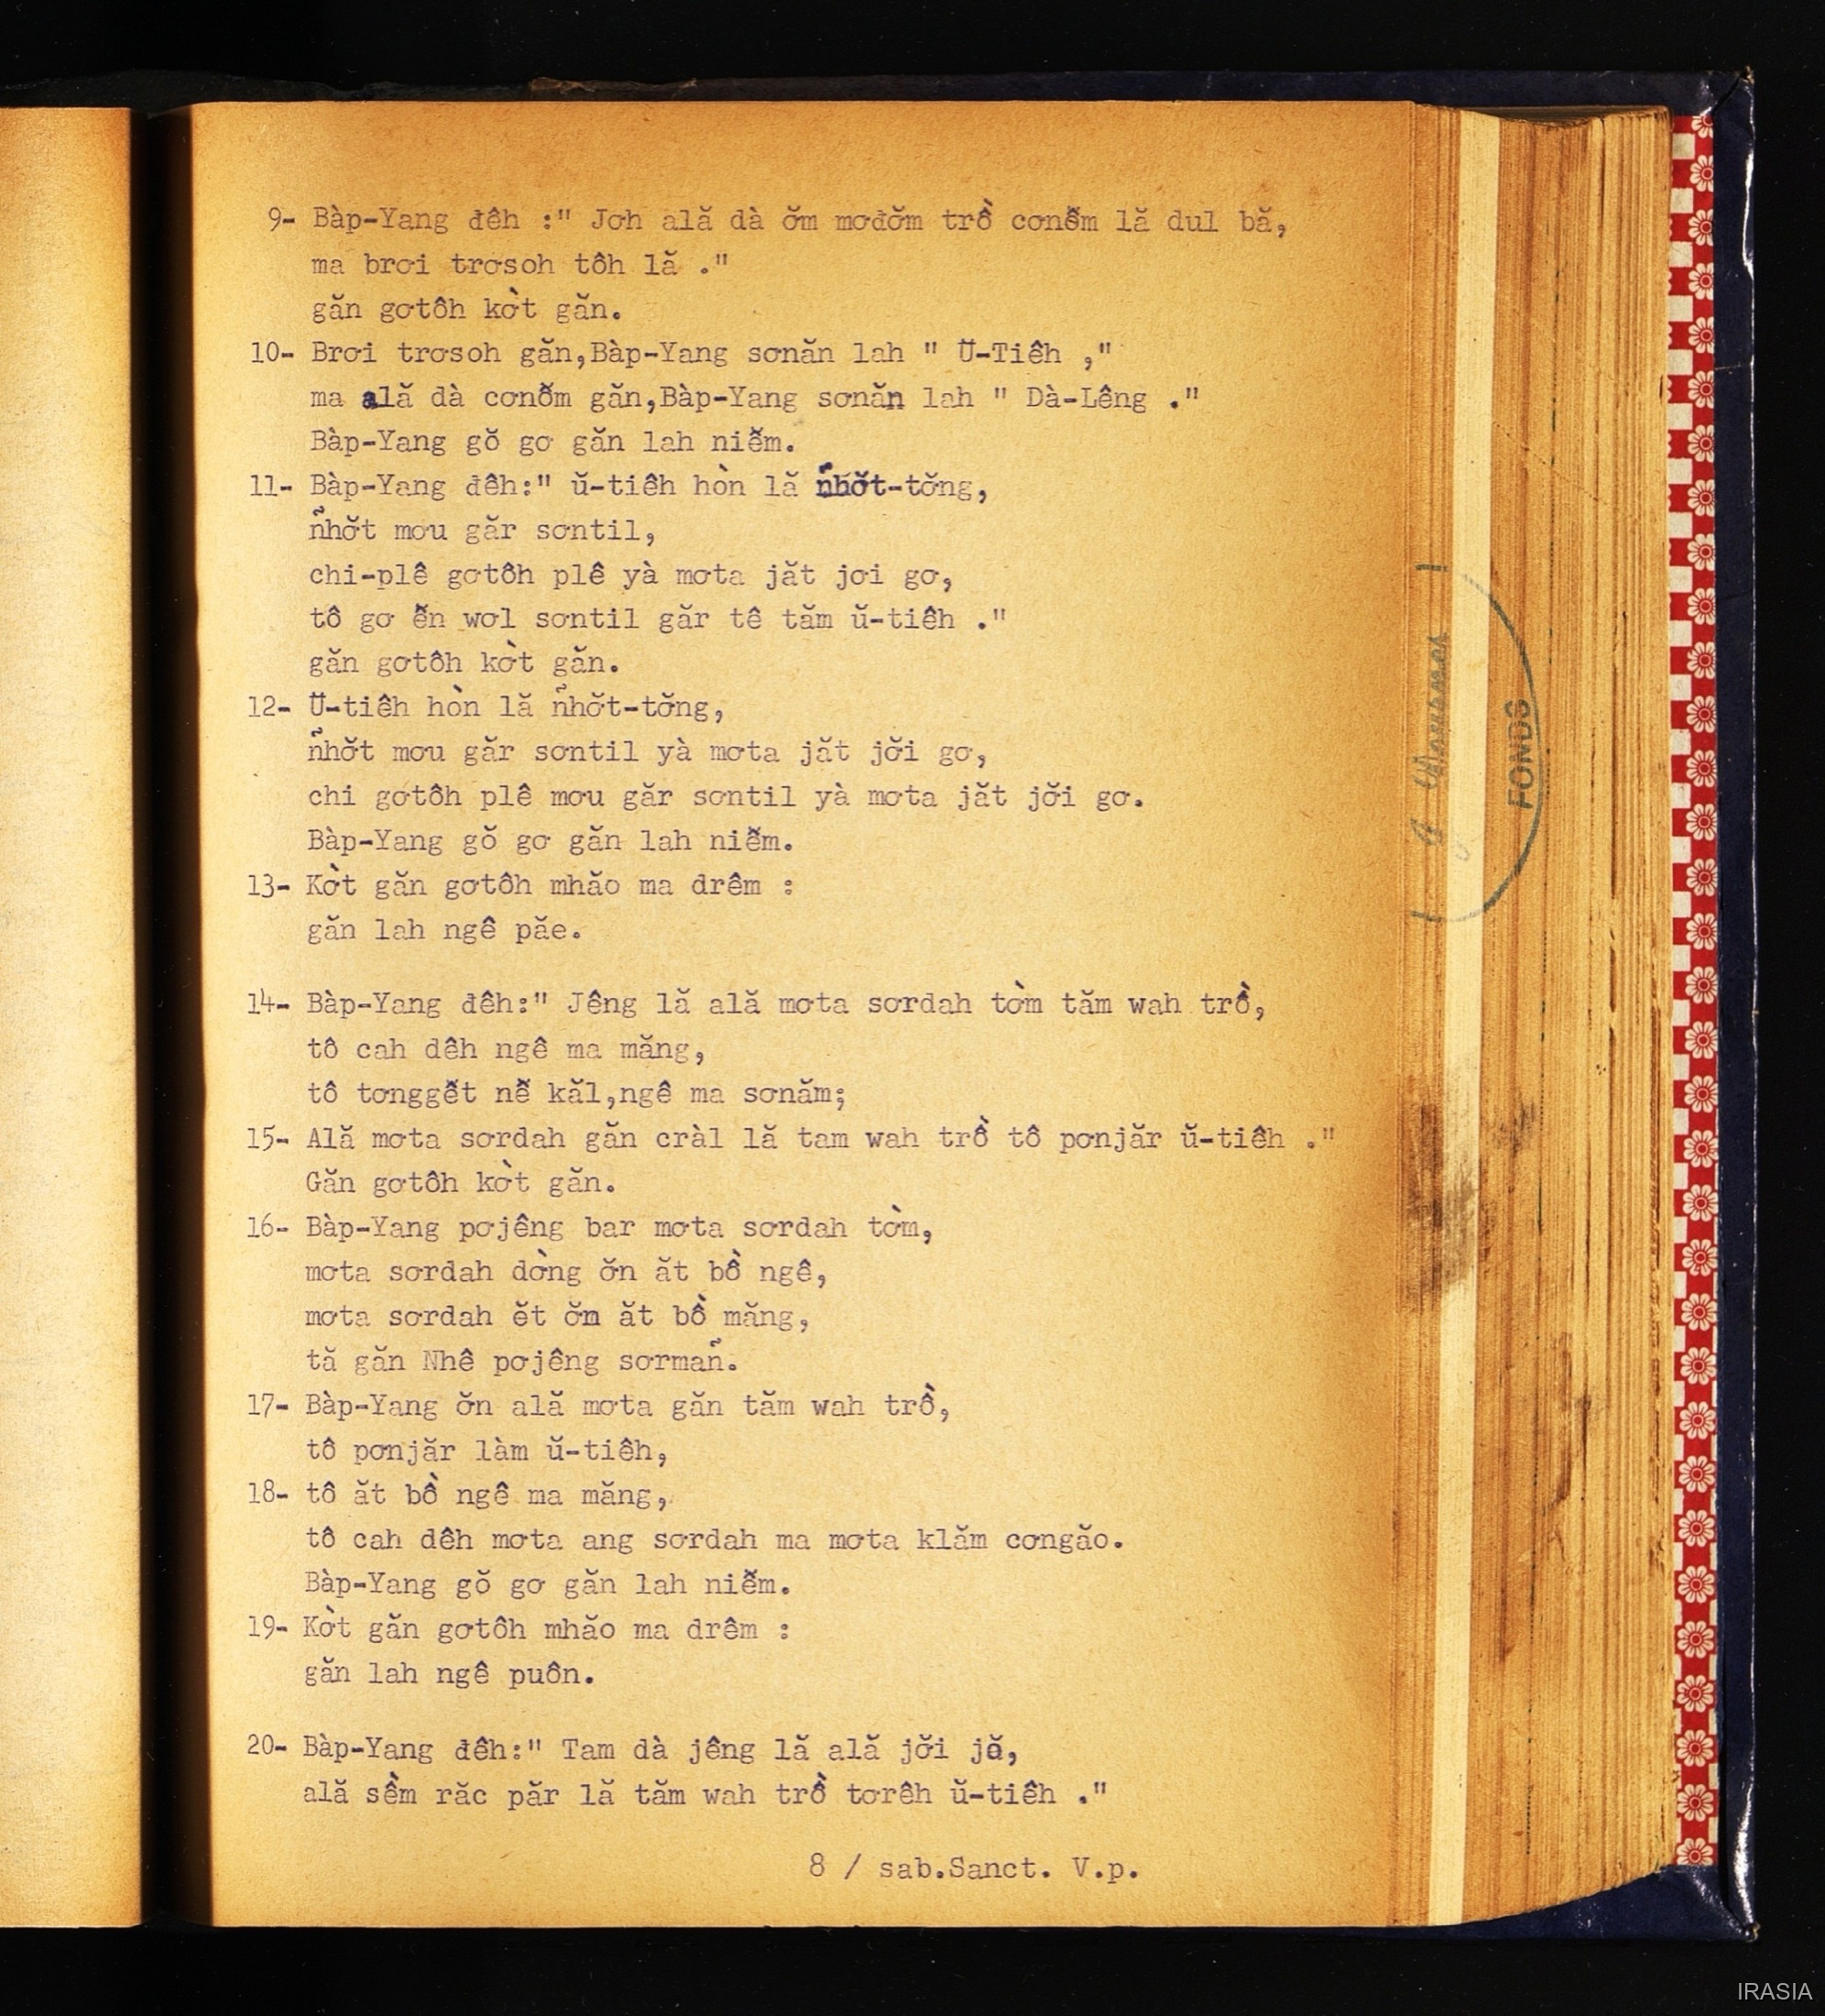 9- Bàp-Yang đêh :" Jơh ală dà ơ̆m mơđơ̆m trồ cơnơ̆m lă dul bă,
ma brơi trơsoh tôh lă ."
găn gơtôh kờt găn.
10- Brơi trơsoh găn,Bàp-Yang sơnăn lah " Ŭ-Tiêh ,"
ma ală dà cơnơ̆m găn,Bàp-Yang sơnăn lah " Dà-Lêng ."
Bàp-Yang gŏ gơ găn lah niê̆m.
11- Bàp-Yang đêh:" ŭ-tiêh hòn lă ñhơ̆t-tơ̆ng,
ñhơ̆t mơu găr sơntil,
chi-plê gơtôh plê yà mơta jăt jơi gơ,
tô gơ ê̆n wơl sơntil găr tê tăm ŭ-tiêh ."
găn gơtôh kờt găn.
12- Ŭ-tiêh hòn lă ñhơ̆t-tơ̆ng,
ñhơ̆t mơu găr sơntil yà mơta jăt jơ̆i gơ,
chi gơtôh plê mơu găr sơntil yà mơta jăt jơ̆i gơ.
Bàp-Yang gŏ gơ găn lah niê̆m.
13- Kờt găn gơtôh mhăo ma drêm :
găn lah ngê păe.
14- Bàp-Yang đêh:" Jêng lă ală mơta sơrdah tờm tăm wah trồ,
tô cah dêh ngê ma măng,
tô tơnggê̆t nê̆ kăl,ngê ma sơnăm;
15- Ală mơta sơrdah găn cràl lă tam wah trồ tô pơnjăr ŭ-tiêh ."
Găn gơtôh kờt găn.
16- Bàp-Yang pơjêng bar mơta sơrdah tờm,
mơta sơrdah dờng ơ̆n ăt bồ ngê,
mơta sơrdah ĕt ơ̆n ăt bồ măng,
tă găn Nhê pơjêng sơrmañ.
17- Bàp-Yang ơ̆n ală mơta găn tăm wah trồ,
tô pơnjăr làm ŭ-tiêh,
18- tô ăt bồ ngê ma măng,
tô cah dêh mơta ang sơrdah ma mơta klăm cơngăo.
Bàp-Yang gŏ gơ găn lah niê̆m.
19- Kờt găn gơtôh mhăo ma drêm :
găn lah ngê puôn.
20- Bàp-Yang đêh:" Tam dà jêng lă ală jơ̆i jŏ,
ală sềm răc păr lă tăm wah trồ tơrêh ŭ-tiêh ."
8 / sab.Sanct. V.p.
FONDS
IRASIA